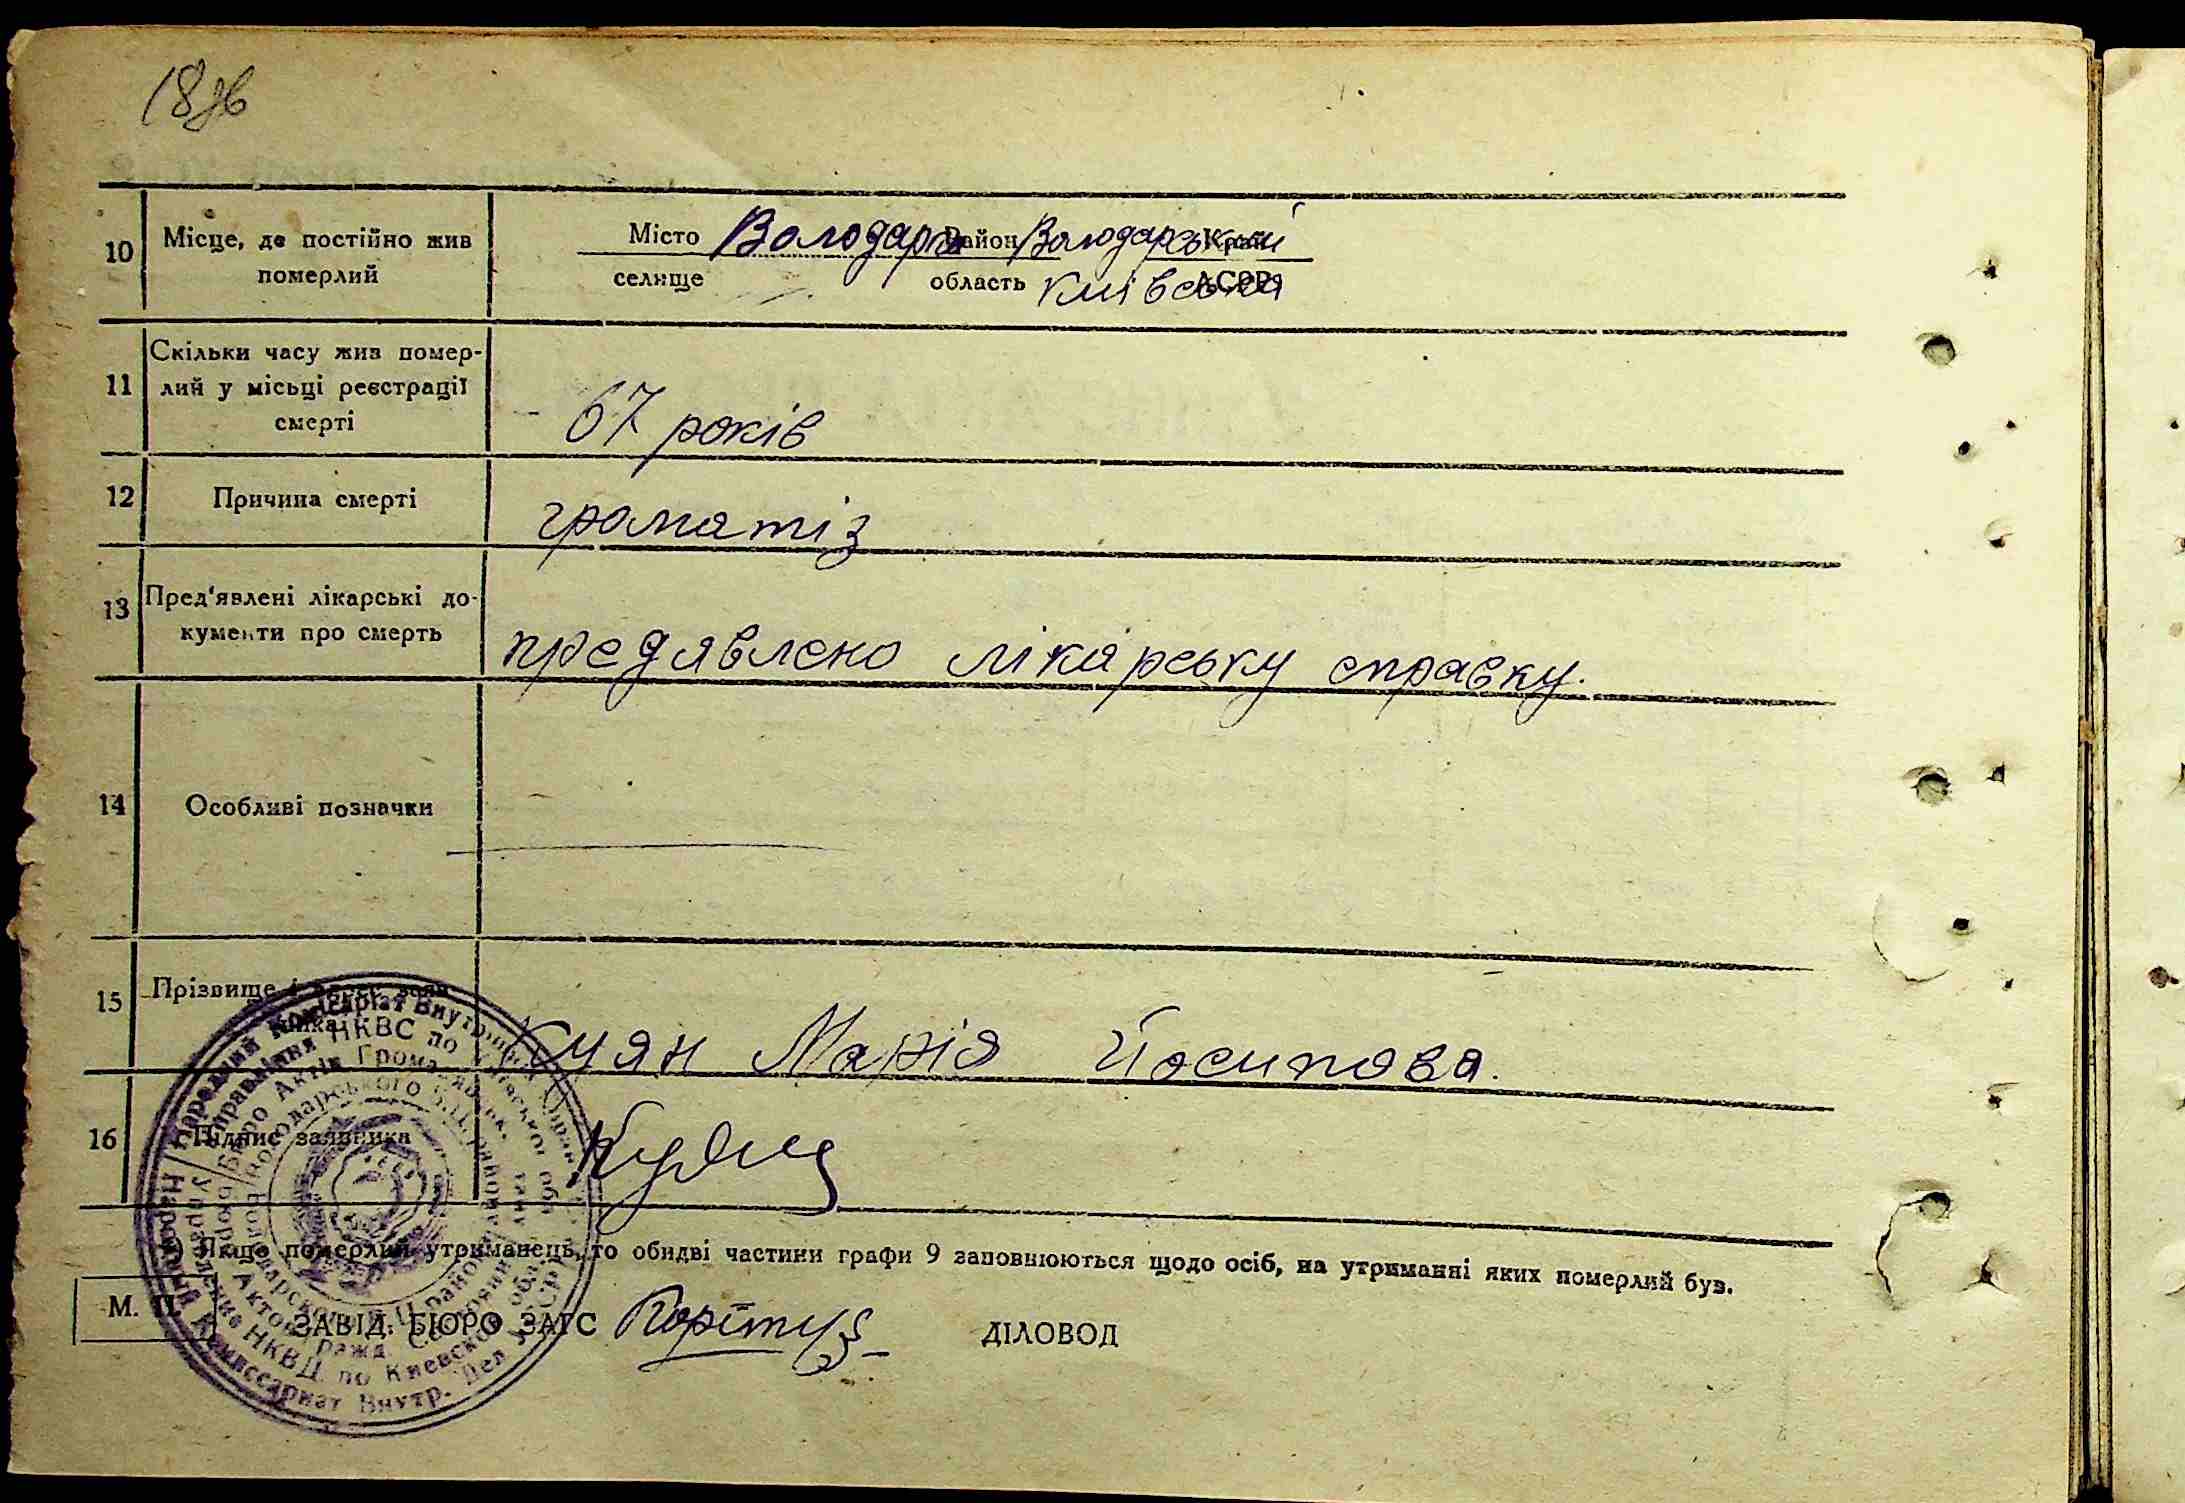 10 Місце, де постійно жив Місто Володарка Район Володарський Край
померлий селище область Київська АСРР
Скільки часу жив помер-
11 лий у місьці реєстрації
смерті 67 років
12 Причина смерті граматіз
13 Пред'явлені лікарські до-
кументи про смерть предявлено лікарську справку.
14 Особливі позначки
15 Прізвище і адрес заяв-
ника Марія Йосипова.
16 Підпис заявника
Якщо померлий утриманець, то обидві частини графи 9 заповнюються щодо осіб, на утриманні яких померлий був.
М. П. ЗАВІД. БЮРО ЗАГС ДІЛОВОД
Народний Комісаріат Внутрішніх Справ
Управління НКВС по Київській обл.
Бюро Актів Громадянськ. стану
Володарського Б.Ц. району
Народный Комиссариат Внутр. Дел УССР
Управление НКВД по Киевской обл.
Бюро Актов Гражд. Состояния
Володарского Б.Ц. района